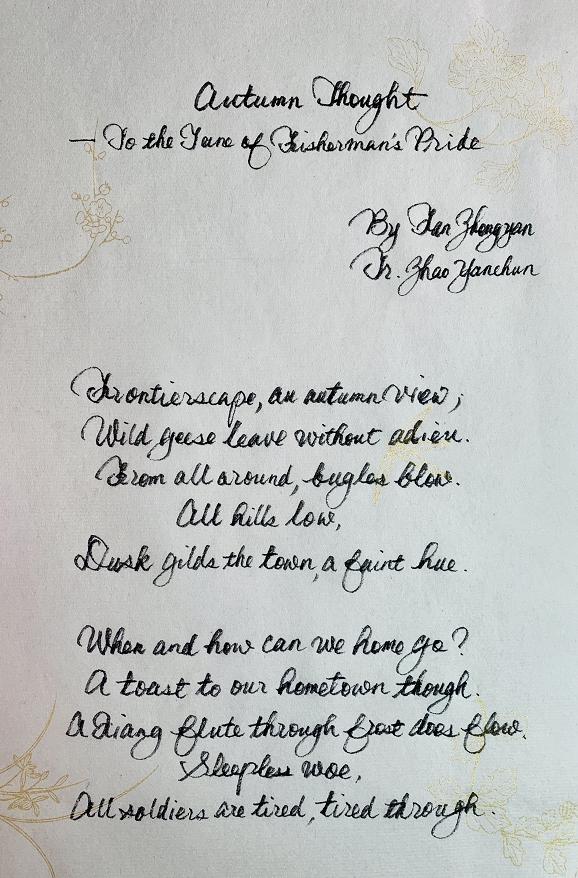 Autumn Thought
— To the Tune of Fisherman's Pride
By Fan Zhongyan
Tr. Zhao Yanchun
Frontierscape, an autumn view;
Wild geese leave without adieu.
From all around, bugles blow.
All hills low,
Dusk gilds the town, a faint hue.
When and how can we home go?
A toast to our hometown though.
A Qiang flute through frost does flow.
Sleepless woe,
All soldiers are tired, tired through.